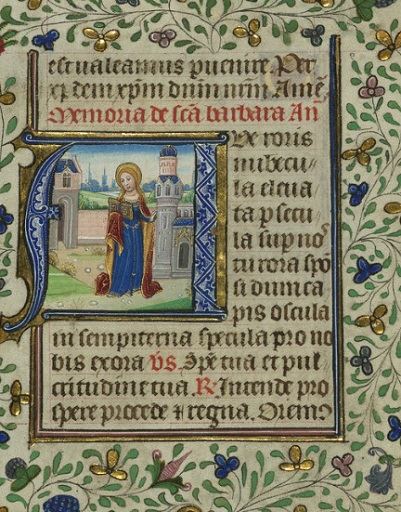 est ualeamus puenire Per
dem xp̄m dn̄m nr̄m Amē
Memoria de scā barbara An̄
Aue roris
nubecu
la eleua
ta p secu
la sup no
tu rora spō
si dum ca
pis oscula
in sempiterna specula pro no
bis exora v̄s Spē tua et pul
critudine tua. R Intende pro
spere procede ⁊ regna. Oremꝰ